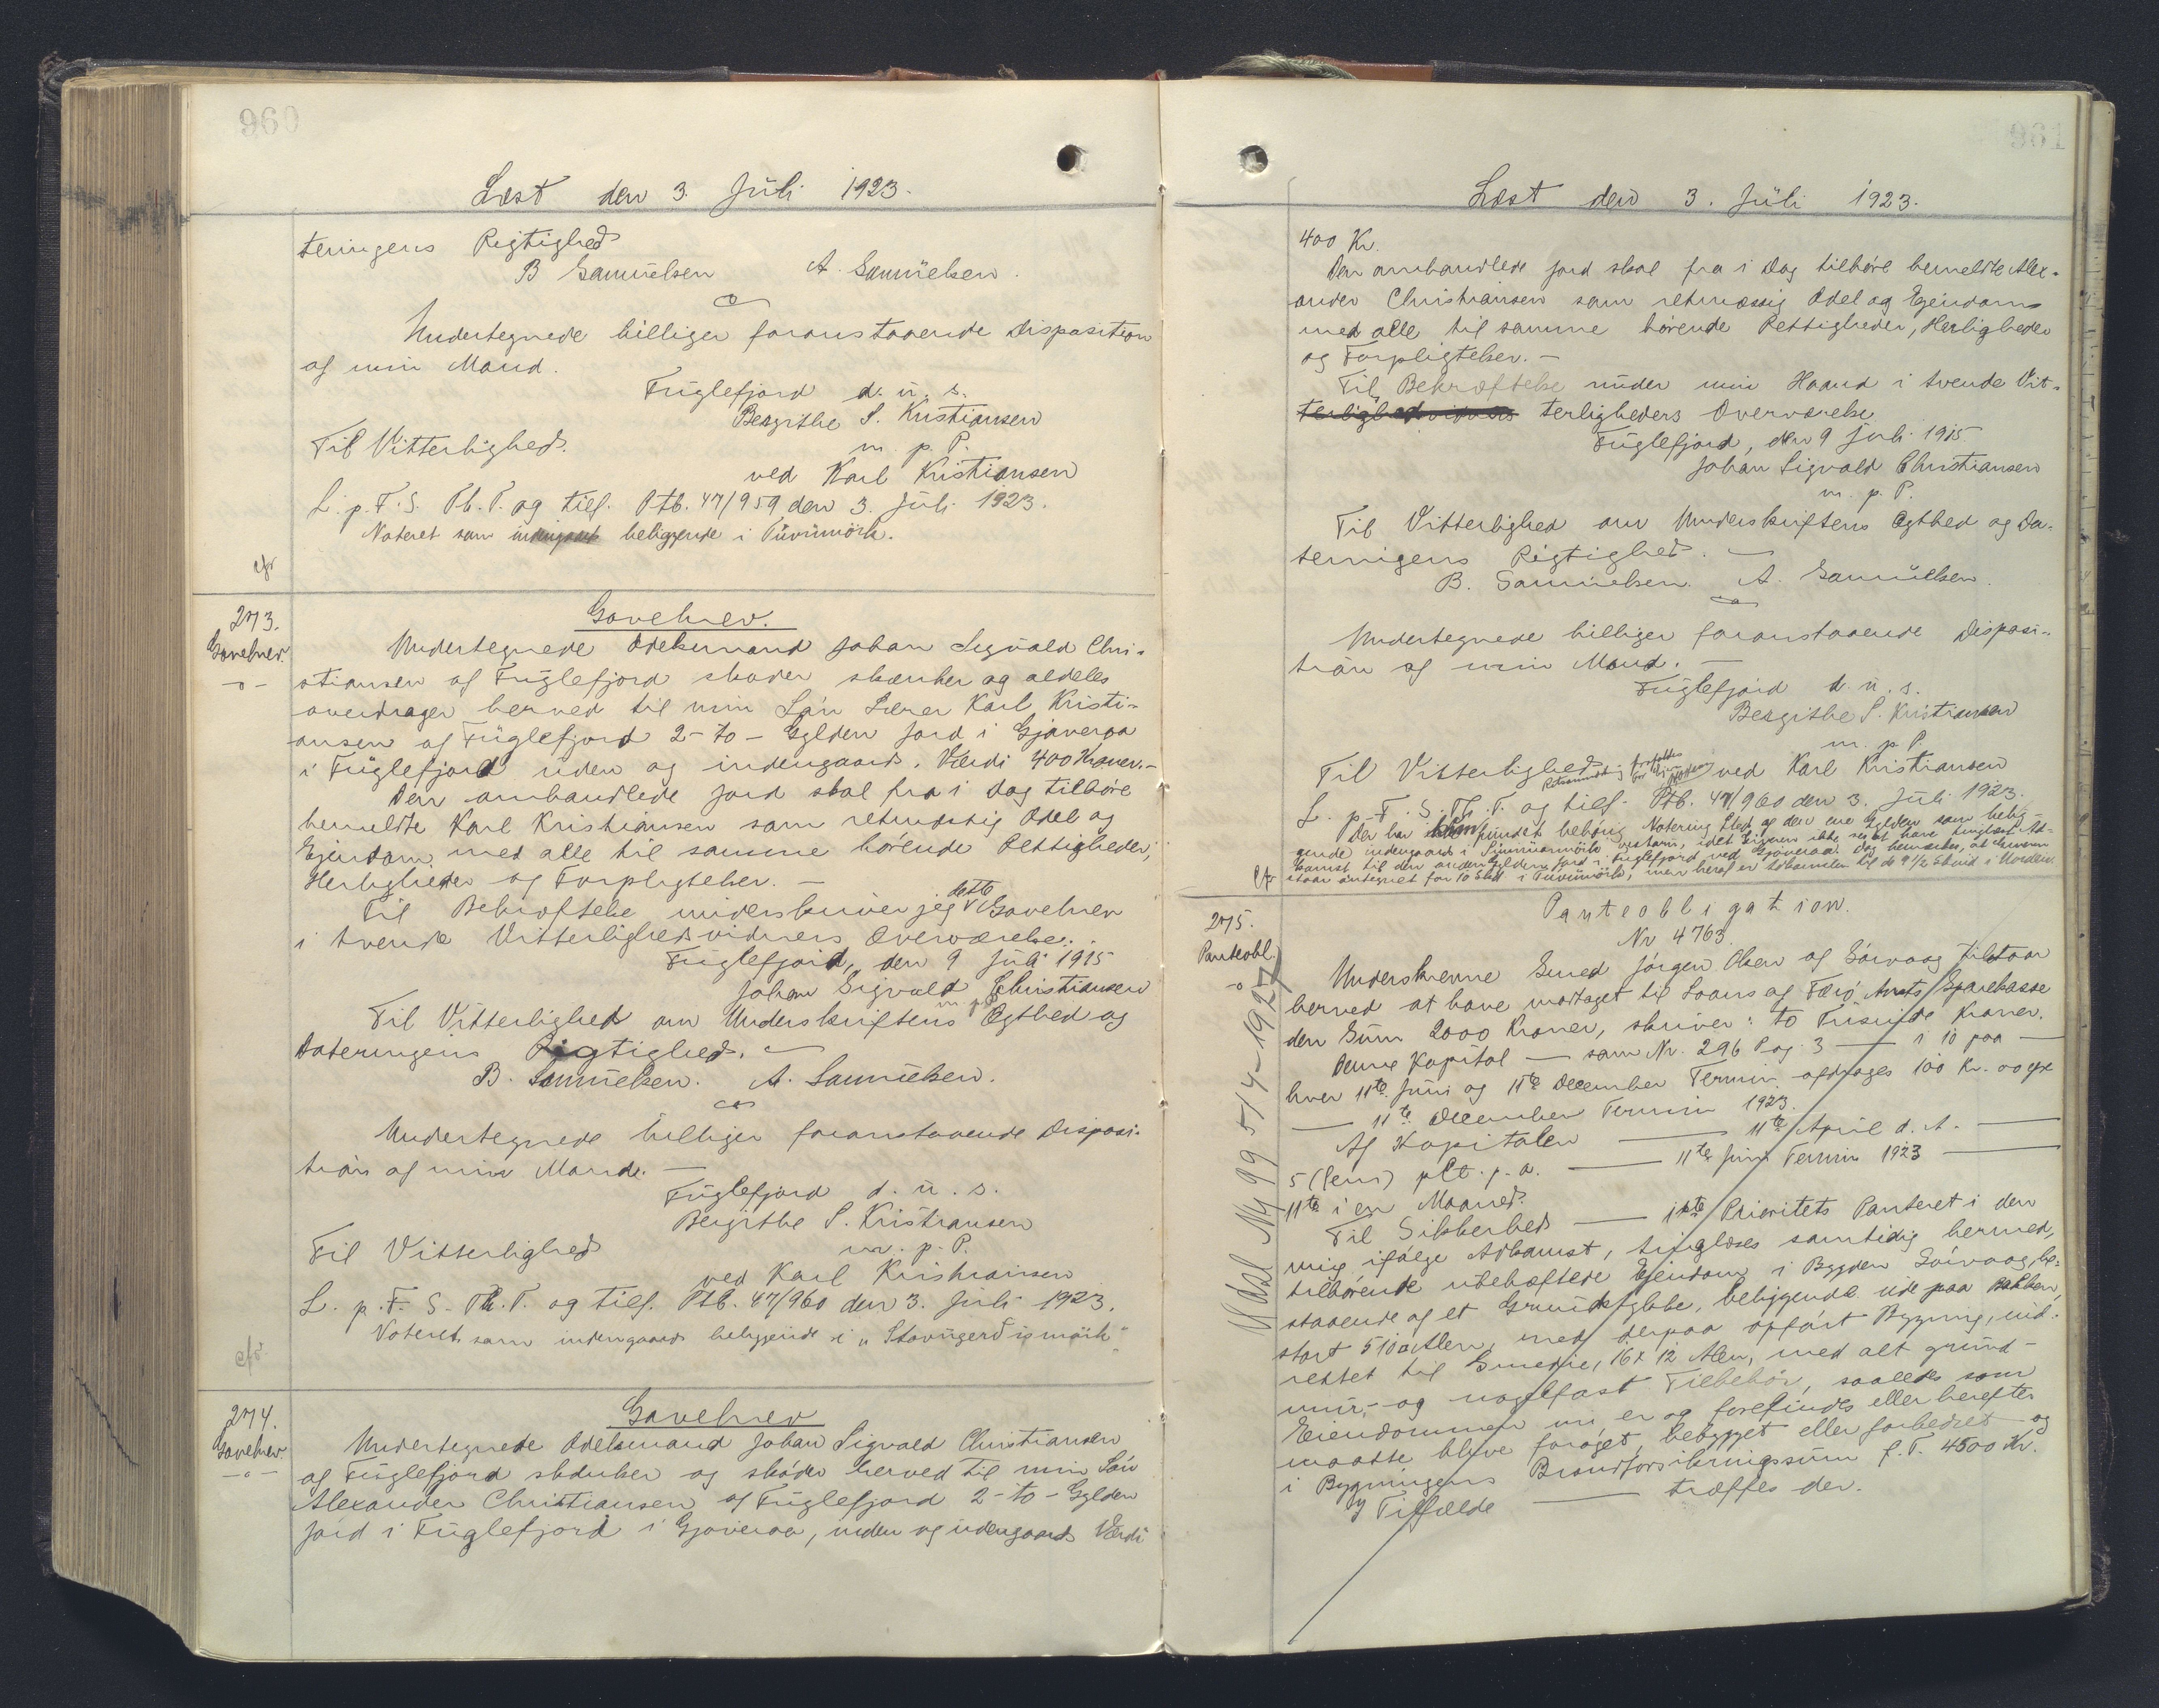 960
Læst den 3. Juli 1923.
teringens Rigtighed
B Samuelsen A. Samuelsen.
Undertegnede billiger foranstaaende Disposition
af min Mand.
Fuglefjord d. u. s.
Bergithe S. Kristiansen
m. p. P.
Til Vitterlighed.
ved Karl Kristiansen
L. p. F. S. Th. T. og tilf. Ptb. 47/959 den 3. Juli 1923.
Noteret som beliggende i Túvumörk.
cfr
273.
Gavebrev.
-o-
Gavebrev.
Undertegnede Odelsmand Johan Sigvald Chri-
stiansen af Fuglefjord skøder skænker og aldeles
overdrager herved til min Søn Lærer Karl Kristi-
ansen af Fuglefjord 2- to - Gylden Jord i Gjøveraa
i Fuglefjord uden og indengaards. Værdi 400 Kroner.-
Den omhandlede Jord skal fra i Dag tilhøre
bemeldte Karl Kristiansen som retmæssig Odel og
Ejendom med alle til samme hørende Rettigheder,
Herligheder og Forpligtelser. -
Til Bekræftelse underskriver jeg dette Gavebrev
i tvende Vitterlighedsvidners Overværelse.
Fuglefjord, den 9 Juli 1915
Johan Sigvald Christiansen
m. p. P.
Til Vitterlighed om Underskriftens Ægthed og
Dateringens Rigtighed. -
B. Samuelsen. A. Samuelsen.
Undertegnede billiger foranstaaende Disposi-
tion af min Mand. -
Fuglefjord d. u. s.
Bergithe S. Kristiansen
Til Vitterlighed m. p. P.
ved Karl Kristiansen
L. p. F. S. Th. T. og tilf. Ptb. 47/960 den 3. Juli 1923.
Noteret som indengaards beliggende i
cfr
274.
Gavebrev.
-o-
Gavebrev
Undertegnede Odelsmand Johan Sigvald Christiansen
af Fuglefjord skænker og skøder herved til min Søn
Alexander Christiansen af Fuglefjord 2- to - Gylden
Jord i Fuglefjord i Gjøveraa, uden og indengaards Værdi
961
Læst den 3. Juli 1923.
400 Kr.
Den omhandlede Jord skal fra i Dag tilhøre bemeldte Alex-
ander Christiansen som retmæssig Odel og Ejendom
med alle til samme hørende Rettigheder, Herligheder
og Forpligtelser. -
Til Bekræftelse under min Haand i tvende Vit-
terligheders Overværelse
Fuglefjord, den 9 Juli 1915
Johan Sigvald Christiansen
m. p. P.
Til Vitterlighed om Underskriftens Ægthed og Da-
teringens Rigtighed. -
B. Samuelsen. A. Samuelsen.
Undertegnede billiger foranstaaende Disposi-
tion af min Mand. -
Fuglefjord d. u. s.
Bergithe S. Kristiansen
m. p. P.
Til Vitterlighed ved Karl Kristiansen
L. p. F. S. Th. T. og tilf. Ptb. 47/960 den 3. Juli 1923.
Der har fundet behørig Notering Sted af den ene Gylden som belig-
gende indengaards i idet Ejeren ikke ses at have tinglæst Ad-
komst til den anden Gylden Jord i Fuglefjord ved Gjøveraa. Dog bemærkes, at
staar antegnet for 10 Skd i Túvumörk, men heraf er
cfr
275.
Panteobl.
-o-
Panteobligation.
Nr 4763.
Underskrevne Smed Jørgen Olsen af Sørvaag tilstaar
herved at have modtaget til Laans af Færø Amts Sparekasse
den Sum 2000 Kroner, skriver: to Tusinde Kroner.
Denne Kapital — som Nr. 296 Pag. 3 — i 10 paa —
hver 11te Juni og 11te December Termin afdrages 100 Kr. 00 Øre
— 11te December Termin 1923.
Af Kapitalen — 11te April d. A. —
5 (fem) pCt. p. a. — 11te Juni Termin 1923 —
11te i en Maaned.
Til Sikkerhed — 1ste Prioritets Panteret i den
mig ifølge Adkomst, tinglæses samtidig hermed,
tilhørende ubehæftede Ejendom i Bygden Sørvaag, be-
staaende af et Grundstykke, beliggende ude paa Bakken,
stort 510 □ Alen, med derpaa opført Bygning, ind-
rettet til Smedje, 16 x 12 Alen, med alt grund-
mur- og nagelfast Tilbehør, saaledes som
Ejendommen nu er og forefindes eller herefter
maatte blive forøget, bebygget eller forbedret og
i Bygningens Brandforsikringssum p. T. 4500 Kr.
I Tilfælde — træffes der.
Udsl Ny 99 5/4-1927